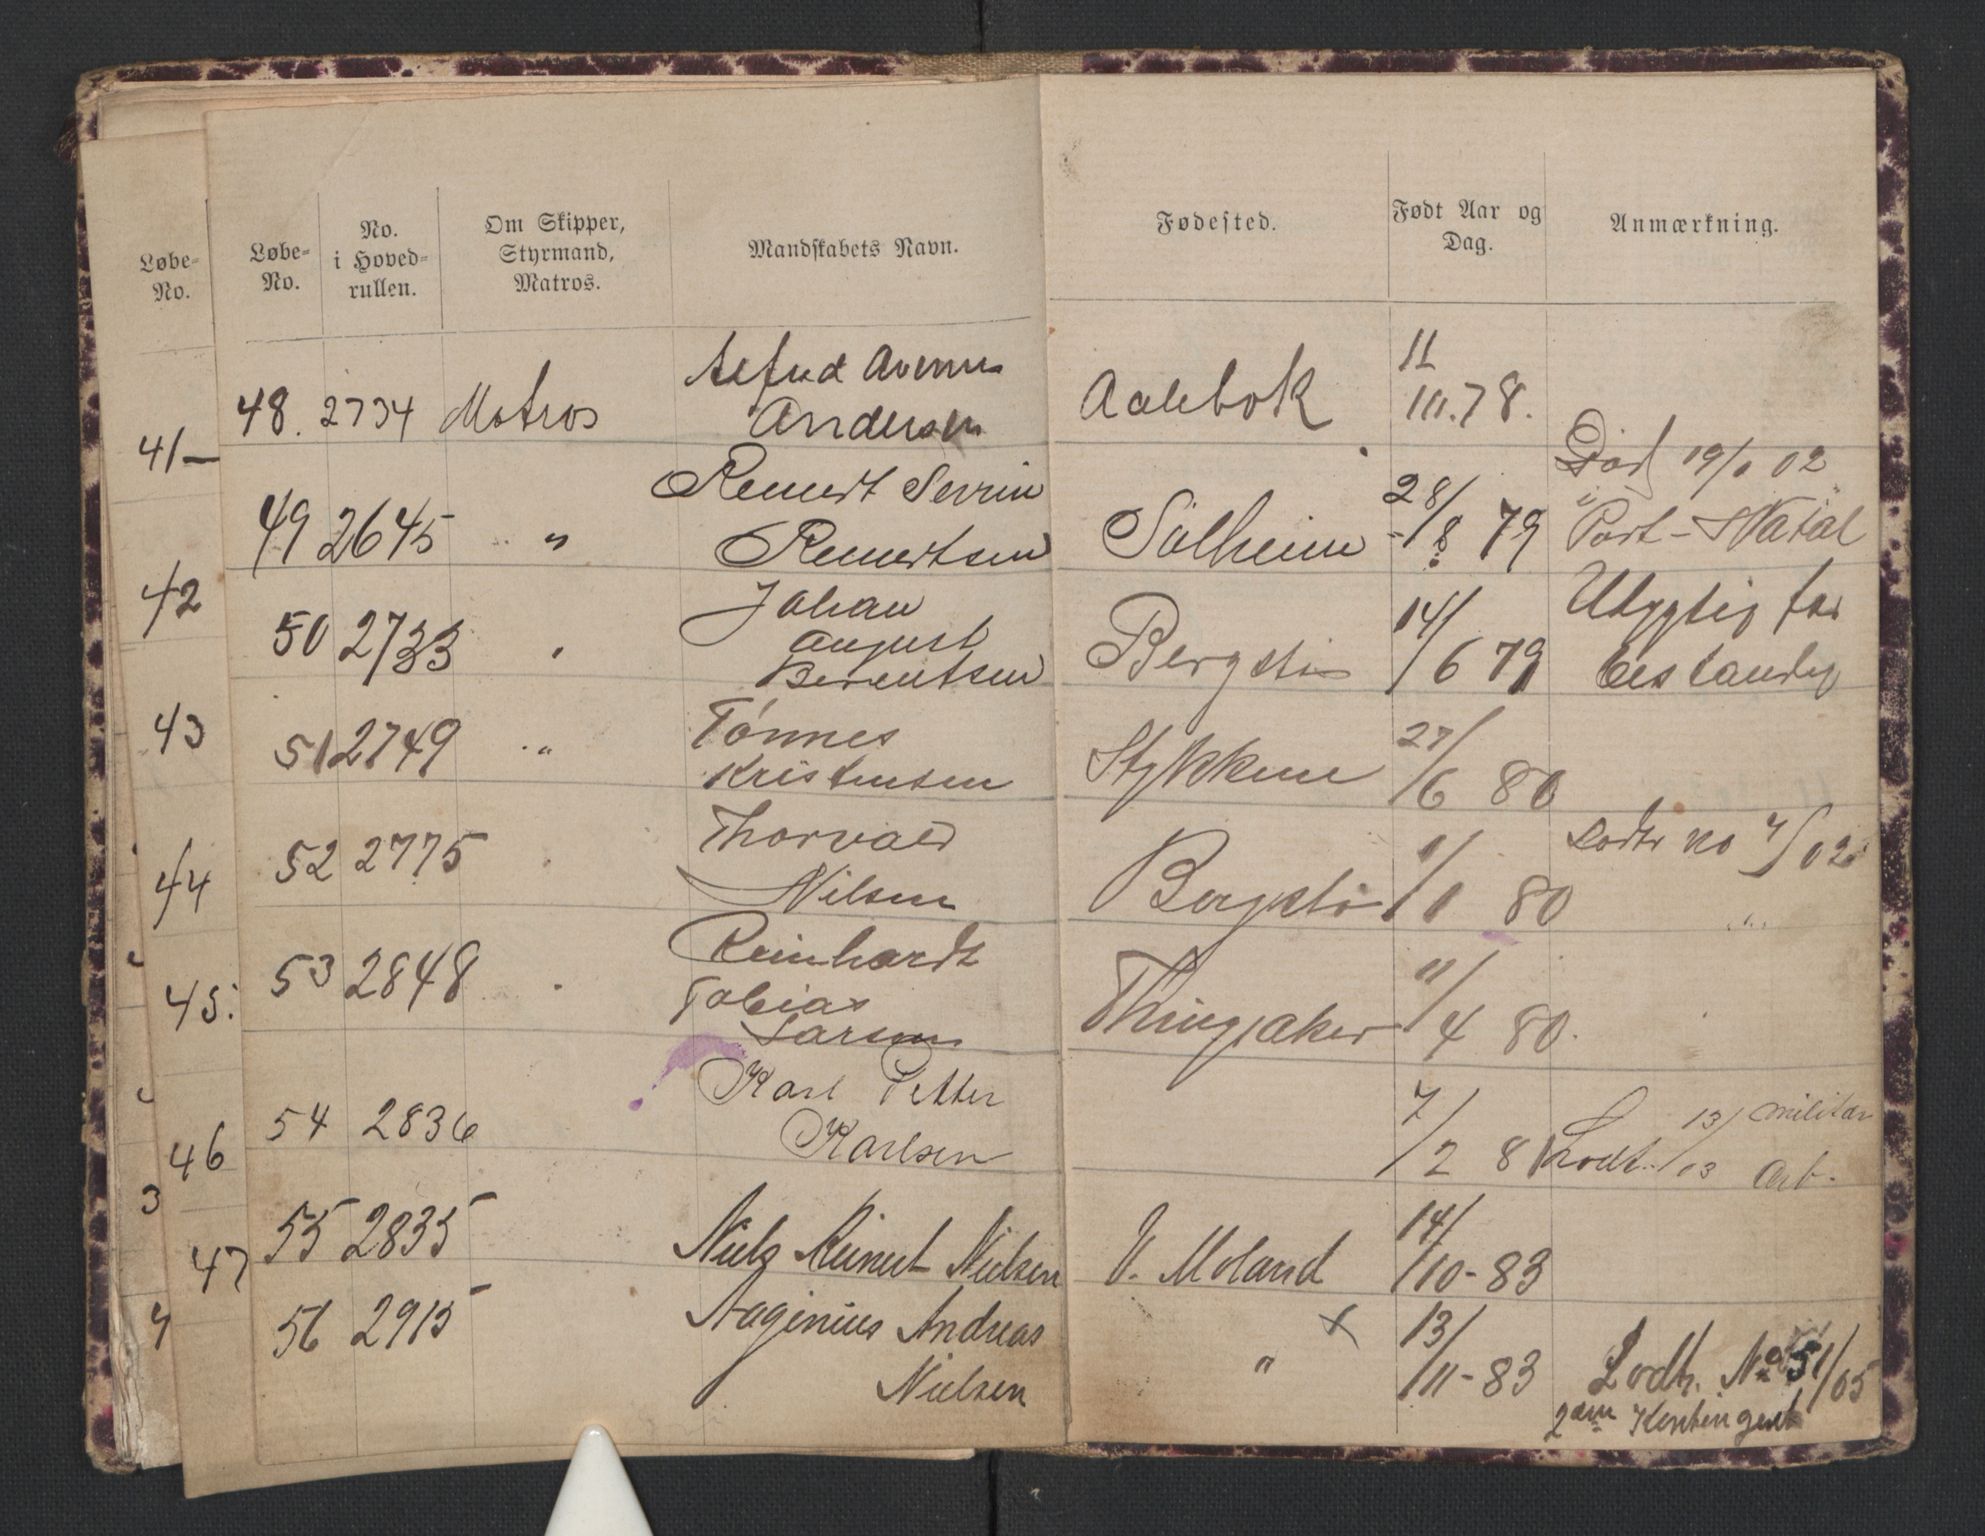 Løbe-
No.
41—
42
43
44
45.
46
3
47
4
Løbe-
No.
No.
i Hoved-
rullen.
Om Skipper,
Styrmand,
Matros.
Mandskabets Navn.
Fødested.
Født Aar og
Dag.
Anmærkning.
48. 2734 Matros
Andersen
Aalebok
11
10.78.
49 2645 "
Reinert Severin
Reinertsen
Solheim
28/8 79
Død 19/1 02
i Port-Natal
50 2733 "
Johan
August
Berentsen
Bergstø
14/6 79
Udygtig for
bestandig
51 2749 "
Tønnes
Kristensen
Stykkene
27/6 80
52 2775 "
Thorvald
Nilsen
Bergstø
1/1 80
Lodtr no 7/02
"
53 2848 "
Reinhardt
Tobias
Larsen
Thingsaker
11/4 80.
54 2836
Karl Petter
Karlsen
7/2 81
Lodt. 13/03 militær
Arb.
55 2835
Niels Reinert Nielsen
V. Moland
14/10-83
56 2915
Aaginius Andreas
Nielsen
" x
13/11-83
Lodtr. No 51/05
2den Kontingent